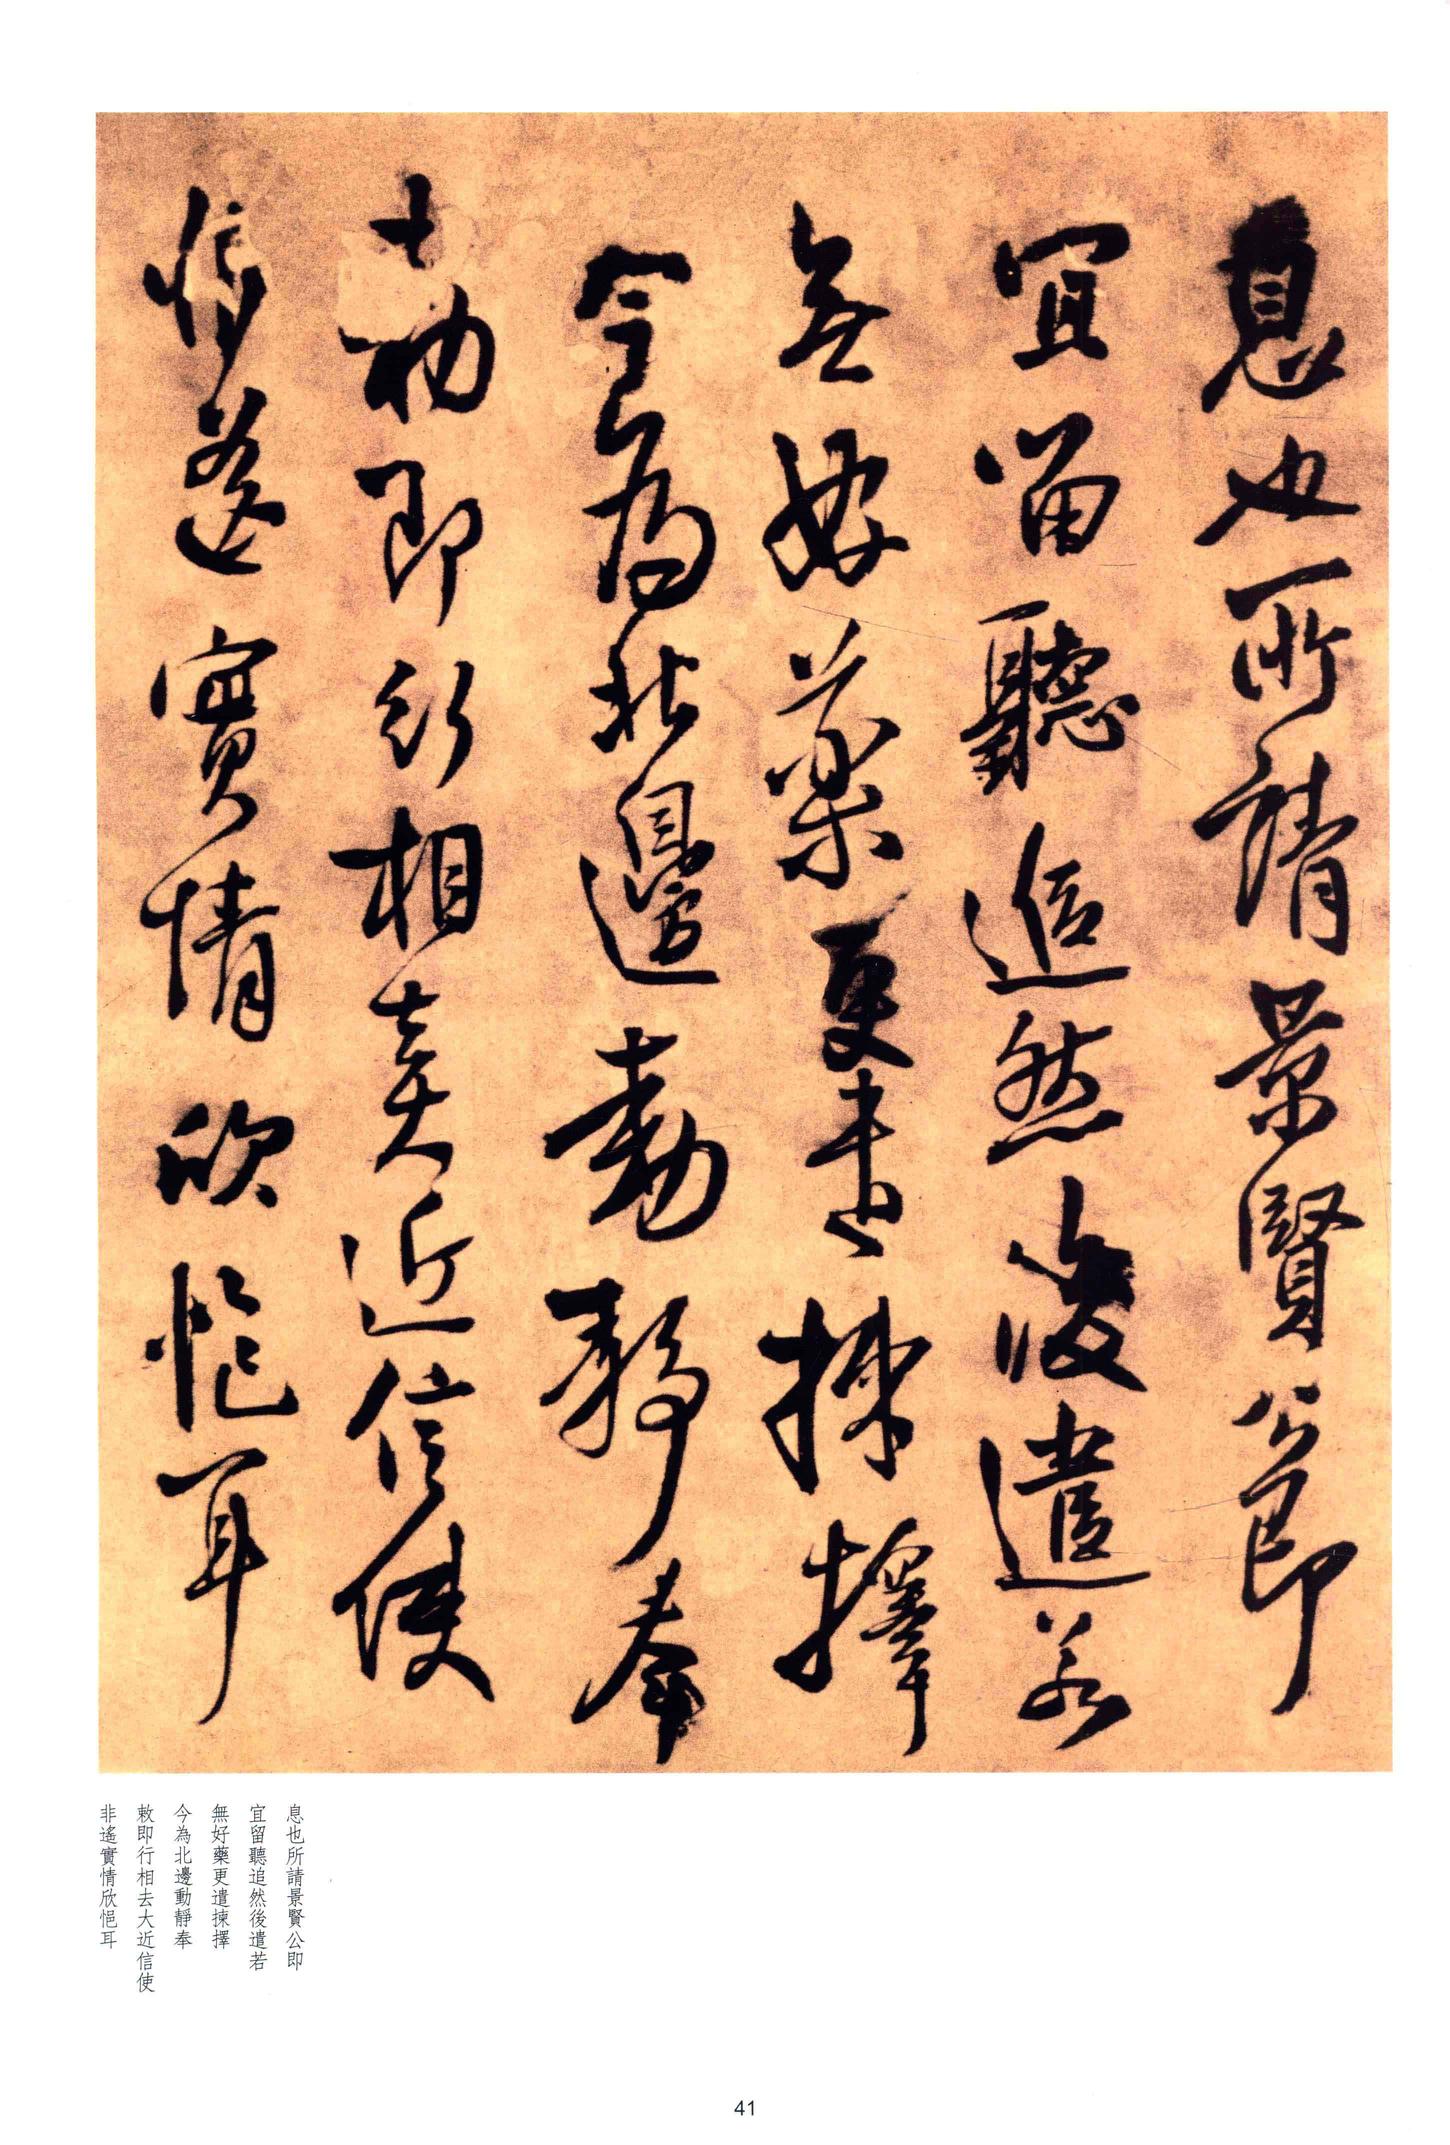 息也所請景賢公即
宜留聽追然後遣若
無好藥更遣揀擇
今為北邊動靜奉
敕即行相去大近信使
非遙實情欣悒耳
息也所請景賢公即
宜留聽追然後遣若
無好藥更遣揀擇
今為北邊動靜奉
敕即行相去大近信使
非遙實情欣悒耳
41